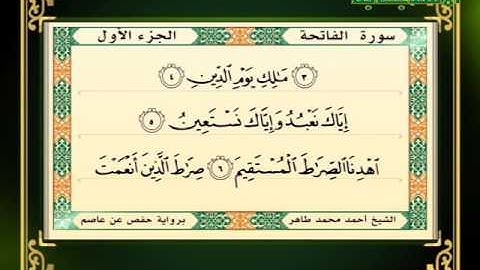 سورة الفاتحة
الجزء الأول
٣ مَـٰلِكِ يَوْمِ الدِّينِ ٤
إِيَّاكَ نَعْبُدُ وَإِيَّاكَ نَسْتَعِينُ ٥
اهْدِنَا الصِّرَاطَ الْمُسْتَقِيمَ ٦ صِرَاطَ الَّذِينَ أَنْعَمْتَ
الشيخ أحمد محمد طاهر
برواية حفص عن عاصم